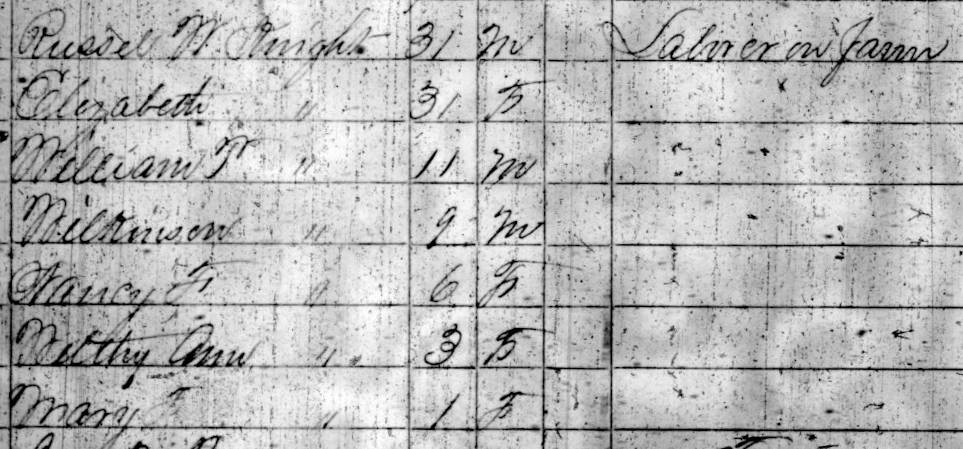 Russell W. Knight 31 M Laborer on Farm
Elizabeth " 31 F
William W " 11 M
Wilkinson " 9 M
Nancy F " 6 F
Wilthy Ann " 3 F
Mary F " 1 F